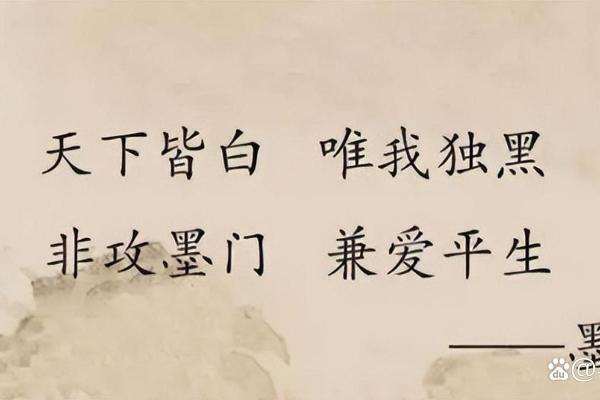 天下皆白 唯我独黑
非攻墨门 兼爱平生
du